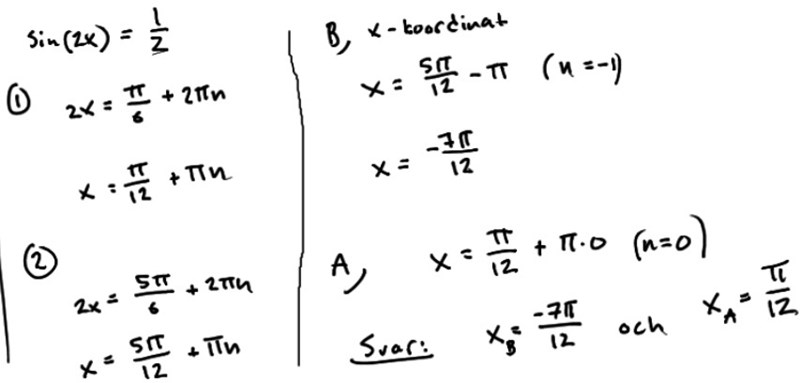 sin(2x) = 1/2
① 2x = π/6 + 2πn
x = π/12 + πn
② 2x = 5π/6 + 2πn
x = 5π/12 + πn
B, x-koordinat
x = 5π/12 - π (n = -1)
x = -7π/12
A, x = π/12 + π·0 (n=0)
Svar: x_B = -7π/12 och x_A = π/12